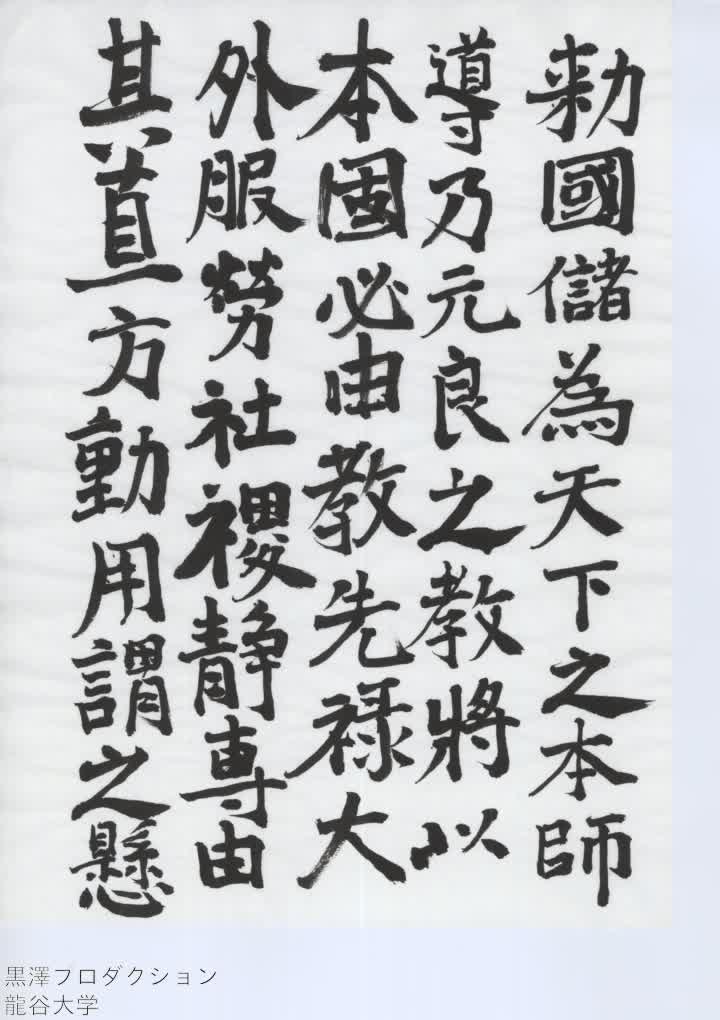 勑國儲為天下之本師
導乃元良之教將以
本固必由教先禄大
外服勞社稷静専由
其直方動用謂之懸
黒澤プロダクション
龍谷大学